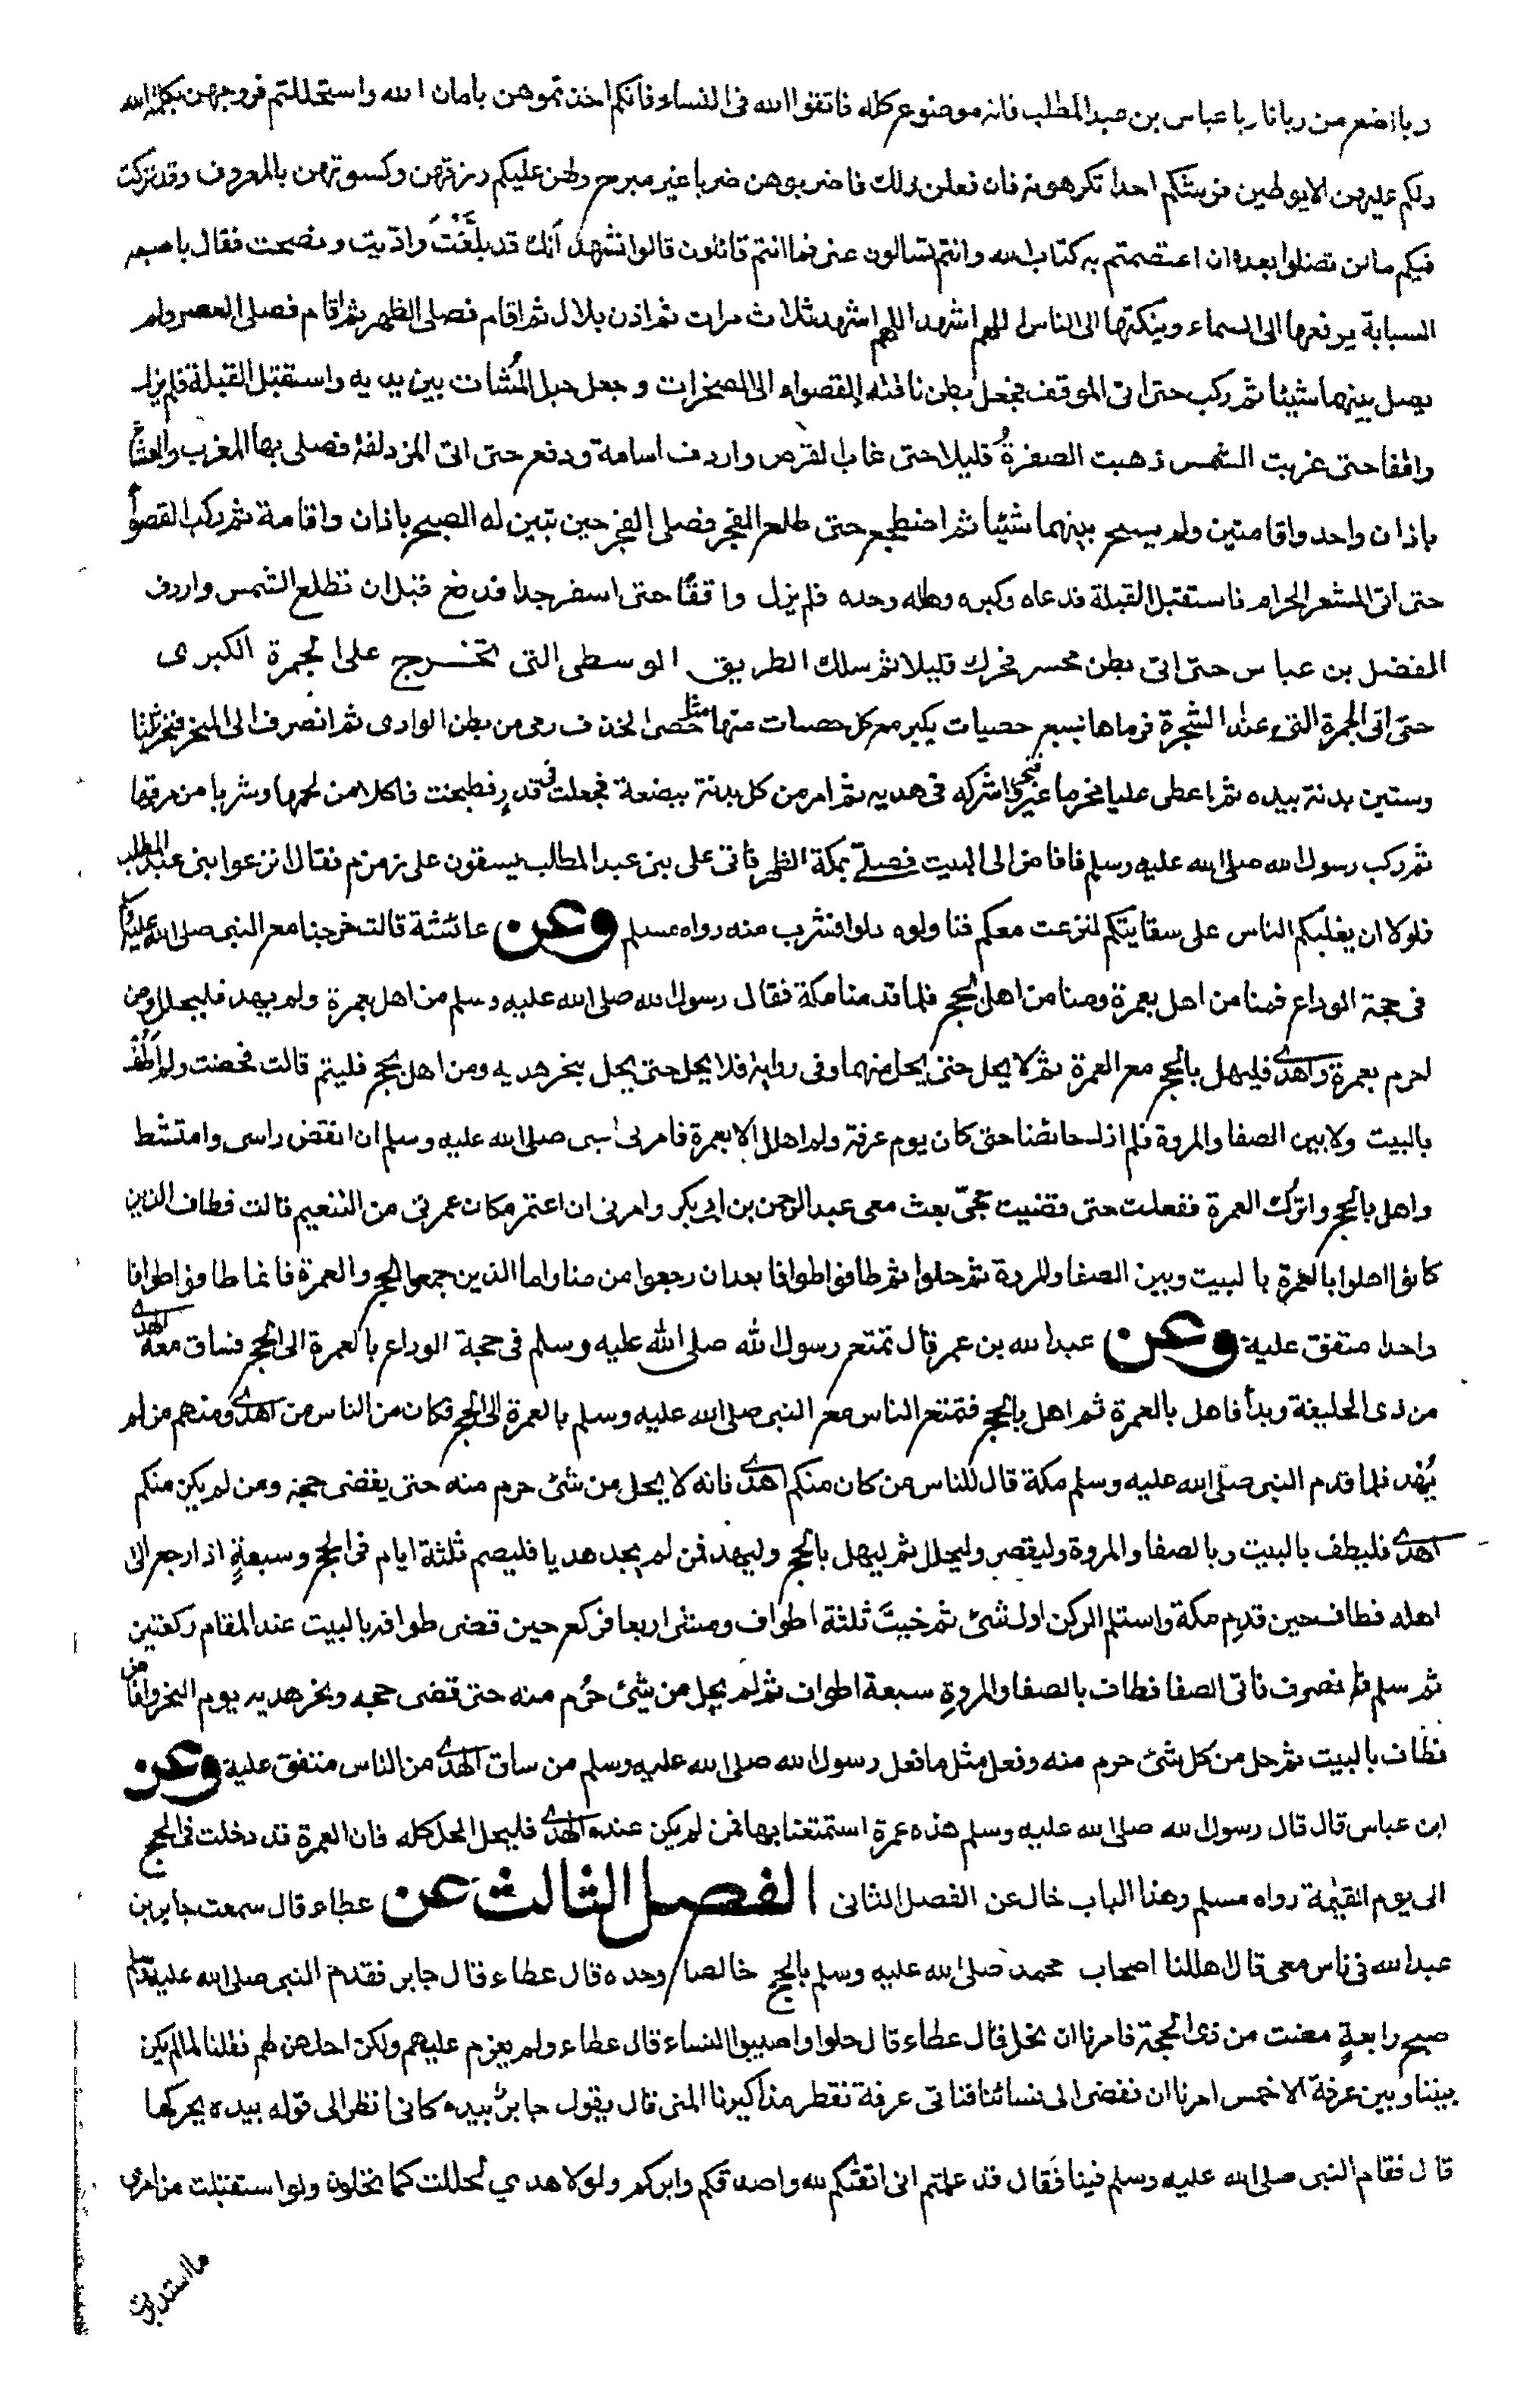 ربا اضع من ربانا ربا عباس بن عبد المطلب فانه موضوع كله فاتقوا الله فى النساء فانكم اخذتموهن بامان الله واستحللتم فروجهن بكلمة الله
ولكم عليهن الا يوطين فرشكم احدا تكرهونه فان فعلن ذلك فاضربوهن ضربا غير مبرح ولهن عليكم رزقهن وكسوتهن بالمعروف وقد تركت
فيكم ما لن تضلوا بعده ان اعتصمتم به كتاب الله وانتم تسالون عنى فما انتم قائلون قالوا نشهد أنك قد بلَّغْتَ وادّيت ونصحت فقال باصبعه
السبابة يرفعها الى السماء وينكتها الى الناس اللهم اشهد اللهم اشهد ثلاث مرات ثم اذن بلال ثم اقام فصلى الظهر ثم اقام فصلى العصر ولم
يصل بينهما شيئا ثم ركب حتى اتى الموقف فجعل بطن ناقته القصواء الى الصخرات وجعل حبل المُشات بين يديه واستقبل القبلة فلم يزل
واقفا حتى غربت الشمس ذهبت الصفرةُ قليلا حتى غاب القرص واردف اسامة ودفع حتى اتى المزدلفة فصلى بها المغرب والعشاء
باذان واحد واقامتين ولم يسبح بينهما شيئا ثم اضطجع حتى طلع الفجر فصلى الفجر حين تبين له الصبح باذان واقامة ثم ركب القصواء
حتى اتى المشعر الحرام فاستقبل القبلة فدعاه وكبره وهلله وحده فلم يزل واقفًا حتى اسفر جدا فدفع قبل ان تطلع الشمس واردف
الفضل بن عباس حتى اتى بطن محسر فحرك قليلا ثم سلك الطريق الوسطى التى تخرج على الجمرة الكبرى
حتى اتى الجمرة التى عند الشجرة فرماها بسبع حصيات يكبر مع كل حصات منها مثل حصى الخذف رمى من بطن الوادى ثم انصرف الى المنحر فنحر ثلثا
وستين بدنة بيده ثم اعطى عليا فنحر ما غبر واشركه فى هديه ثم امر من كل بدنة ببضعة فجعلت فى قدرٍ فطبخت فاكلا من لحمها وشربا من مرقها
ثم ركب رسول الله صلى الله عليه وسلم فافاض الى البيت فصلى بمكة الظهر فاتى على بنى عبد المطالب يسقون على زمزم فقال انزعوا بنى عبد المطلب
فلولا ان يغلبكم الناس على سقايتكم لنزعت معكم فناولوه دلوا فشرب منه رواه مسلم وعن عائشة قالت خرجنا مع النبى صلى الله عليه وسلم
فى حجة الوداع فمنا من اهل بعمرة ومنا من اهل بحج فلما قدمنا مكة فقال رسول الله صلى الله عليه وسلم من اهل بعمرة ولم يهد فليحلل ومن
احرم بعمرة واهدى فليهل بالحج مع العمرة ثم لا يحل حتى يحل منهما وفى رواية فلا يحل حتى يحل بنحر هديه ومن اهل بحج فليتم قالت فحضت ولم أطُفْ
بالبيت ولا بين الصفا والمروة فلم ازل حائضا حتى كان يوم عرفة ولم اهلل الا بعمرة فامرنى النبى صلى الله عليه وسلم ان انقض راسى وامتشط
واهل بالحج واترُك العمرة ففعلت حتى قضيت حجّى بعث معى عبد الرحمن بن ابى بكر وامرنى ان اعتمر مكان عمرتى من التنعيم قالت فطاف الذين
كانوا اهلوا بالعمرة بالبيت وبين الصفا والمروة ثم حلوا ثم طافوا طوافا بعد ان رجعوا من منا واما الذين جمعوا الحج والعمرة فانما طافوا طوافا
واحدا متفق عليه وعن عبد الله بن عمر قال تمتع رسول الله صلى الله عليه وسلم فى حجة الوداع بالعمرة الى الحج فساق معه الهدى
من ذى الحليفة وبدأ فاهل بالعمرة ثم اهل بالحج فتمتع الناس مع النبى صلى الله عليه وسلم بالعمرة الى الحج فكان من الناس من اهدى ومنهم من لم
يُهْد فلما قدم النبى صلى الله عليه وسلم مكة قال للناس من كان منكم اهدى فانه لا يحل من شئ حرم منه حتى يقضى حجه ومن لم يكن منكم
اهدى فليطف بالبيت وبالصفا والمروة وليقصر وليحلل ثم ليهل بالحج وليهد فمن لم يجد هديا فليصم ثلثة ايام فى الحج وسبعةٍ اذا رجع الى
اهله فطاف حين قدِم مكة واستلم الركن اول شئ ثم خبَّ ثلثة اطواف ومشى اربعا فركع حين قضى طوافه بالبيت عند المقام ركعتين
ثم سلم فانصرف فاتى الصفا فطاف بالصفا والمروةِ سبعة اطواف ثم لم يحل من شئ حرُم منه حتى قضى حجه ونحر هديه يوم النحر وافاض
فطاف بالبيت ثم حل من كل شئ حرم منه وفعل مثل ما فعل رسول الله صلى الله عليه وسلم من ساق الهدى من الناس متفق عليه وعن
ابن عباس قال قال رسول الله صلى الله عليه وسلم هذه عمرة استمتعنا بها فمن لم يكن عنده الهدى فليحل الحل كله فان العمرة قد دخلت فى الحج
الى يوم القيٰمة رواه مسلم وهذا الباب خال عن الفصل الثانى الفصل الثالث عن عطاء قال سمعت جابر بن
عبد الله فى ناس معى قال اهللنا اصحاب محمد صلى الله عليه وسلم بالحج خالصا وحده قال عطاء قال جابر فقدم النبى صلى الله عليه وسلم
صبح رابعةٍ مضت من ذى الحجة فامرنا ان نحل قال عطاء قال حلوا واصيبوا النساء قال عطاء ولم يعزم عليهم ولكن احلهن لهم فقلنا لما لم يكن
بيننا وبين عرفة الا خمس امرنا ان نفضى الى نسائنا فناتى عرفة تقطر مذاكيرنا المنى قال يقول جابرٌ بيده كانى انظر الى قوله بيده يحركها
قال فقام النبى صلى الله عليه وسلم فينا فَقال قد علمتم انى اتقٰكم لله واصدقكم وابركم ولولا هديي لحللت كما تحلون ولو استقبلت من امرى
ما استدبرت